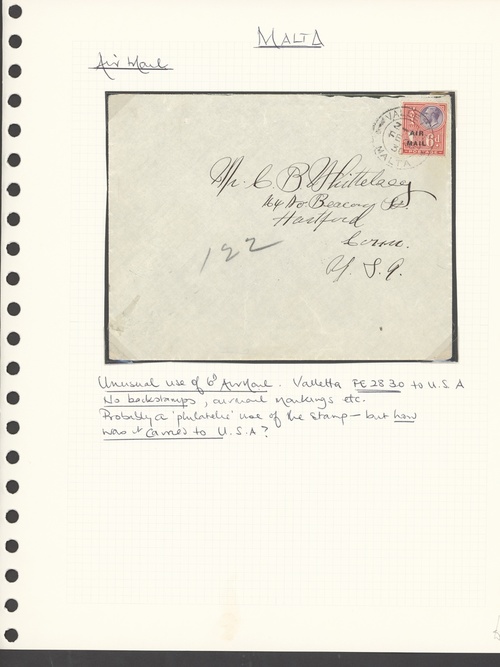 MALTA
Air Mail
VALLETTA
MALTA
AIR
MAIL
6d
POSTAGE
Mr. C B Whittelsey
164 No Beacon St.
Hartford
Conn.
U. S. A.
122
Unusual use of 6d Air Mail. Valletta FE 28 30 to U.S.A
No backstamps, airmail markings etc.
Probably a 'philatelic' use of the stamp - but how
was it carried to U.S.A?